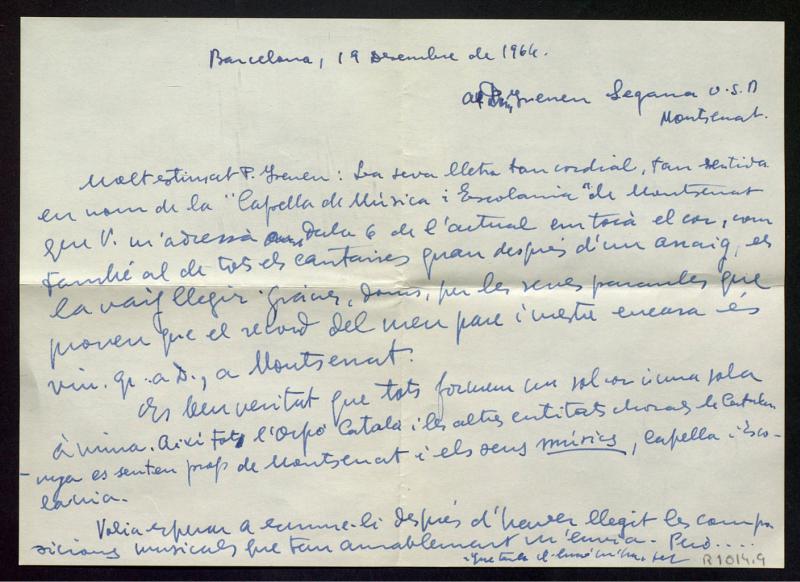 Barcelona, 19 Desembre de 1964.
Segarra O.S.B
Montserrat.
Molt estimat P. Ireneu: La seva lletra tan cordial, tan sentida
en nom de la "Capella de Música i Escolania" de Montserrat
que V. m'adressà data 6 de l'actual em tocà el cor, com
també al de tots els cantaires quan després d'un assaig, els
la vaig llegir. Gràcies, doncs, per les seves paraules que
proven que el record del meu pare i mestre encara és
viu. gr. a D., a Montserrat.
És ben veritat que tots formem un sol cor i una sola
ànima. Així tots l'Orfeó Català i les altres entitats chorals de Catalu-
nya es senten prop de Montserrat i els seus músics, Capella i Esco-
lania.
Volia esperar a escriure-li després d'haver llegit les compo
sicions musicals que tan amablement m'envia. Però....
R 1014.9